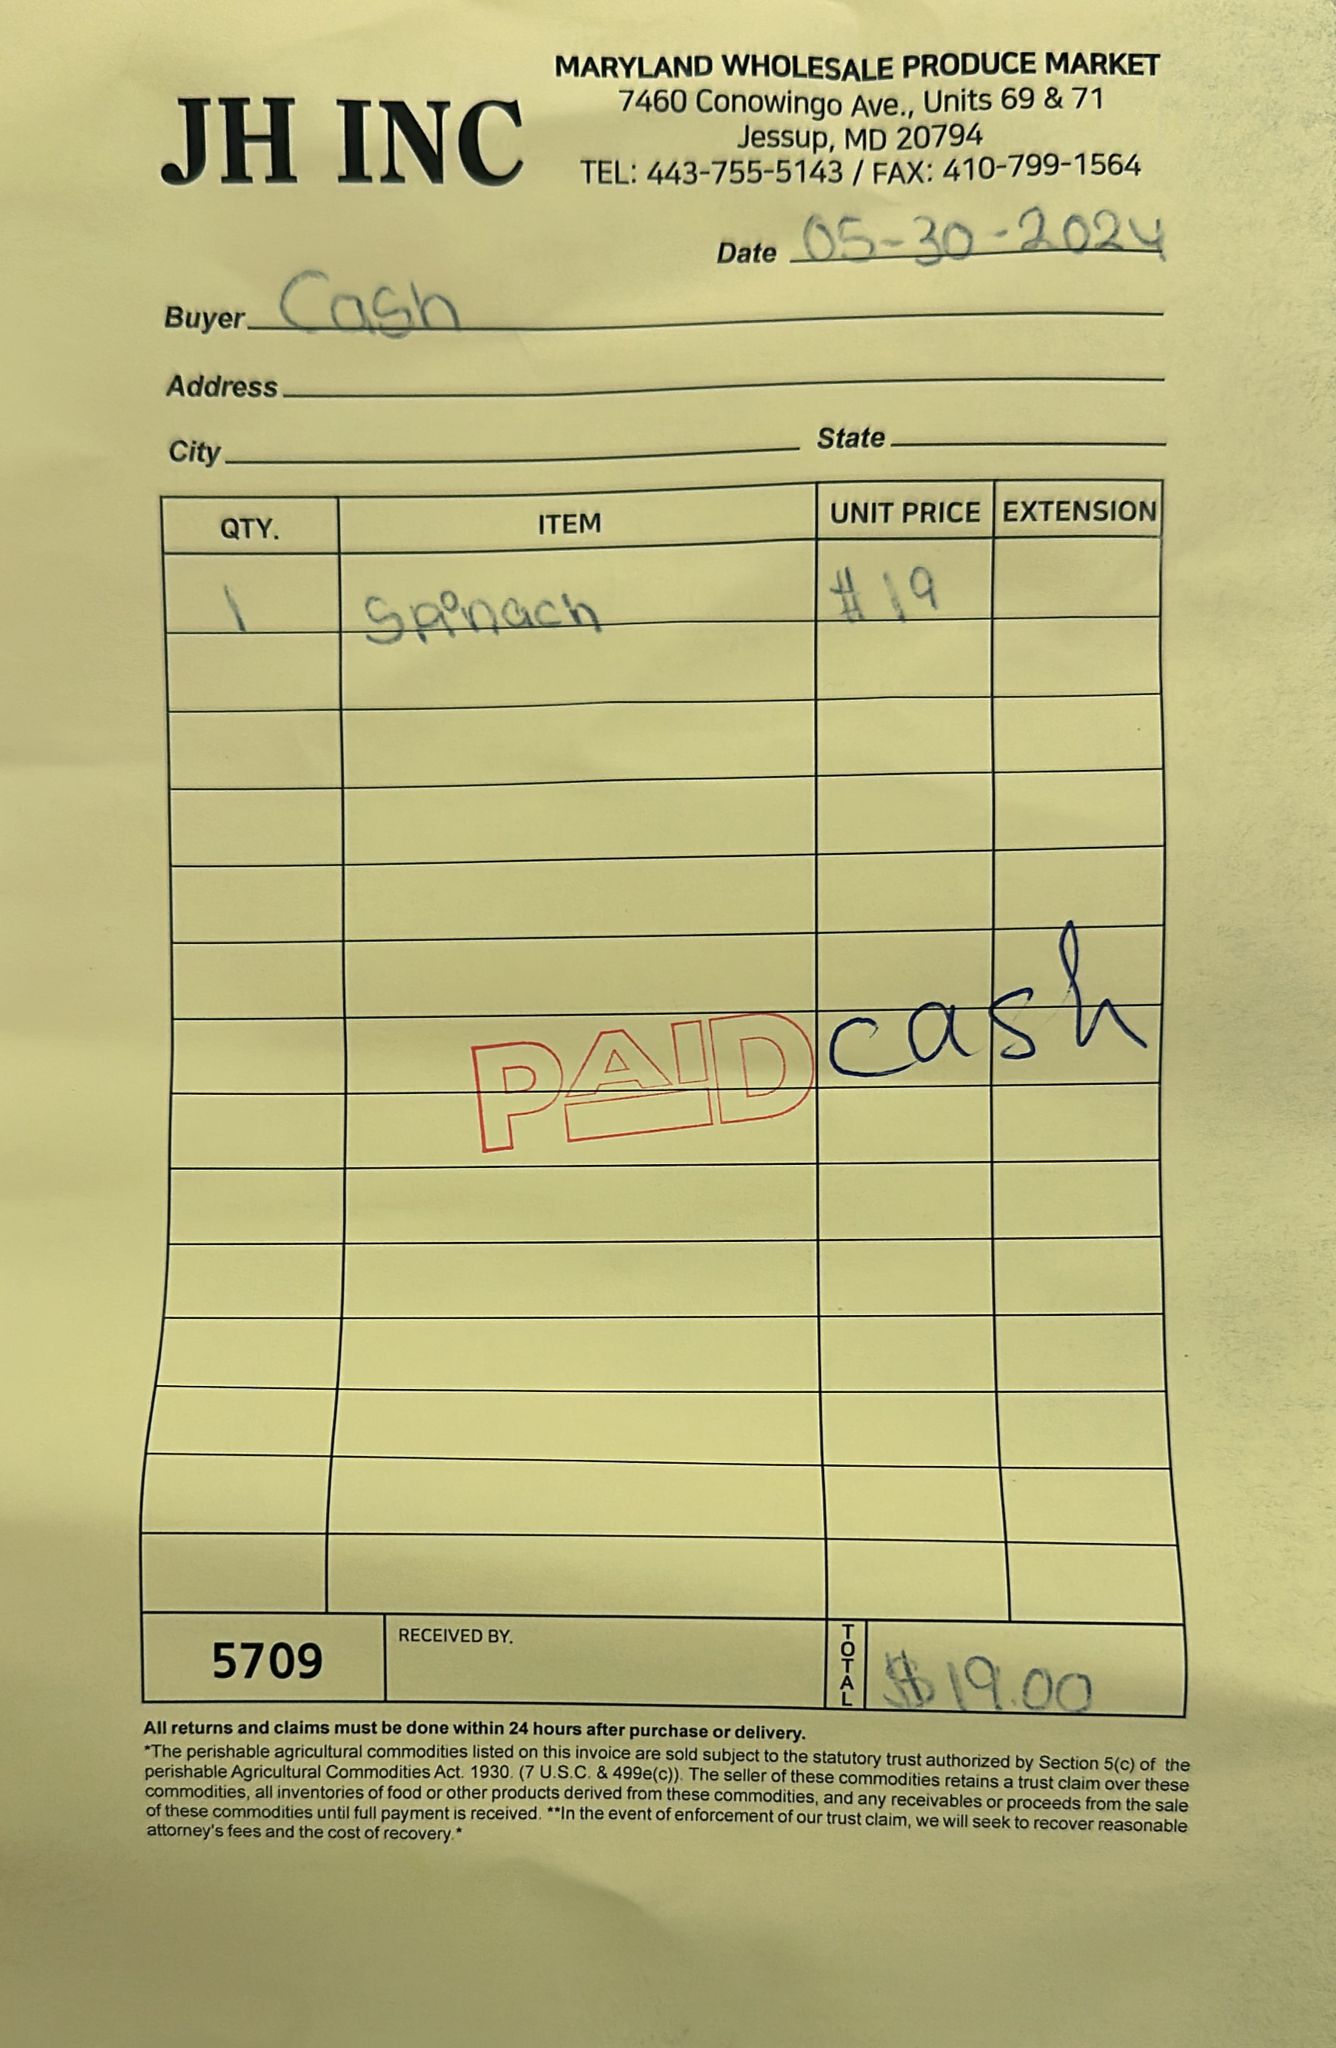 JH INC
MARYLAND WHOLESALE PRODUCE MARKET
7460 Conowingo Ave., Units 69 & 71
Jessup, MD 20794
TEL: 443-755-5143 / FAX: 410-799-1564
Date 05-30-2024
Buyer Cash
Address
City State
QTY. ITEM UNIT PRICE EXTENSION
1 Spinach $19
PAID cash
5709 RECEIVED BY. TOTAL $19.00
All returns and claims must be done within 24 hours after purchase or delivery.
*The perishable agricultural commodities listed on this invoice are sold subject to the statutory trust authorized by Section 5(c) of the
perishable Agricultural Commodities Act. 1930. (7 U.S.C. & 499e(c)). The seller of these commodities retains a trust claim over these
commodities, all inventories of food or other products derived from these commodities, and any receivables or proceeds from the sale
of these commodities until full payment is received. **In the event of enforcement of our trust claim, we will seek to recover reasonable
attorney's fees and the cost of recovery.*